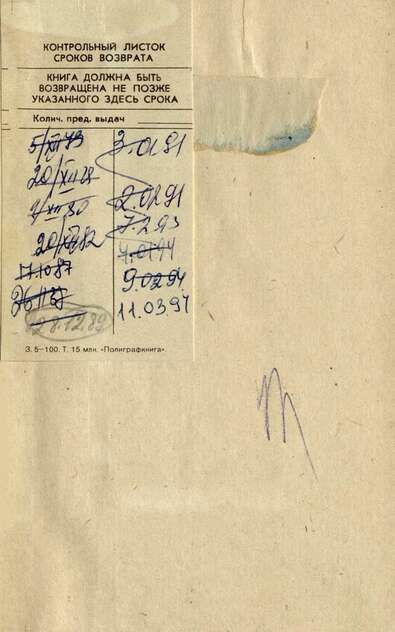 КОНТРОЛЬНЫЙ ЛИСТОК
СРОКОВ ВОЗВРАТА
КНИГА ДОЛЖНА БЫТЬ
ВОЗВРАЩЕНА НЕ ПОЗЖЕ
УКАЗАННОГО ЗДЕСЬ СРОКА
Колич. пред. выдач
20/XII
20/XII 82
17.10.87
28.12.89
3.01.91
2.02.91
7.2.93
4.01.94
9.02.94
11.03.97
З. 5—100. Т. 15 млн. «Полиграфкнига».